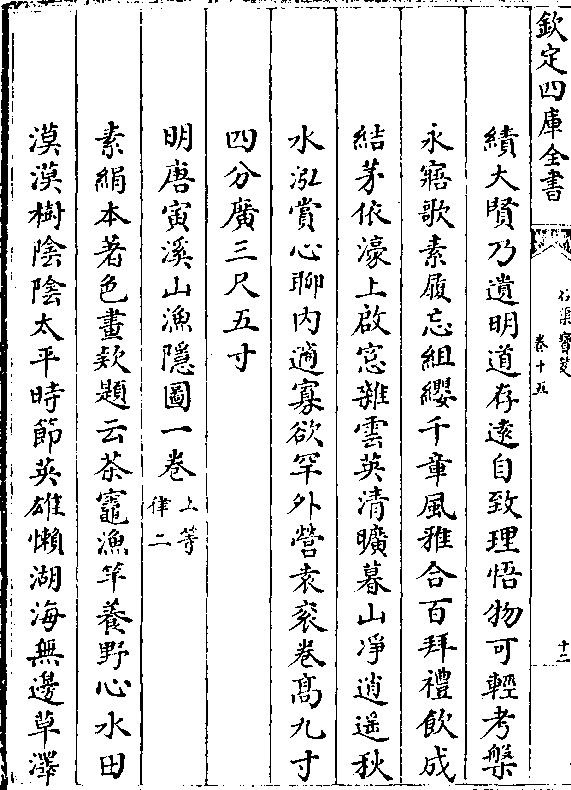 欽定四庫全書
石渠寶笈
卷十五
十二
績大賢乃遺明道存遠自致理悟物可輕考槃
永寤歌素履忘組纓千章風雅合百拜禮飲成
結茅依濠上啟窓雜雲英清曠暮山淨逍遥秋
水泓賞心聊内適寡欲罕外營袁裒卷髙九寸
四分廣三尺五寸
明唐寅溪山漁隱圖一卷上等律二
素絹本著色畫欵題云茶竈漁竿養野心水田
漠漠樹陰陰太平時節英雄懶湖海無邊草澤